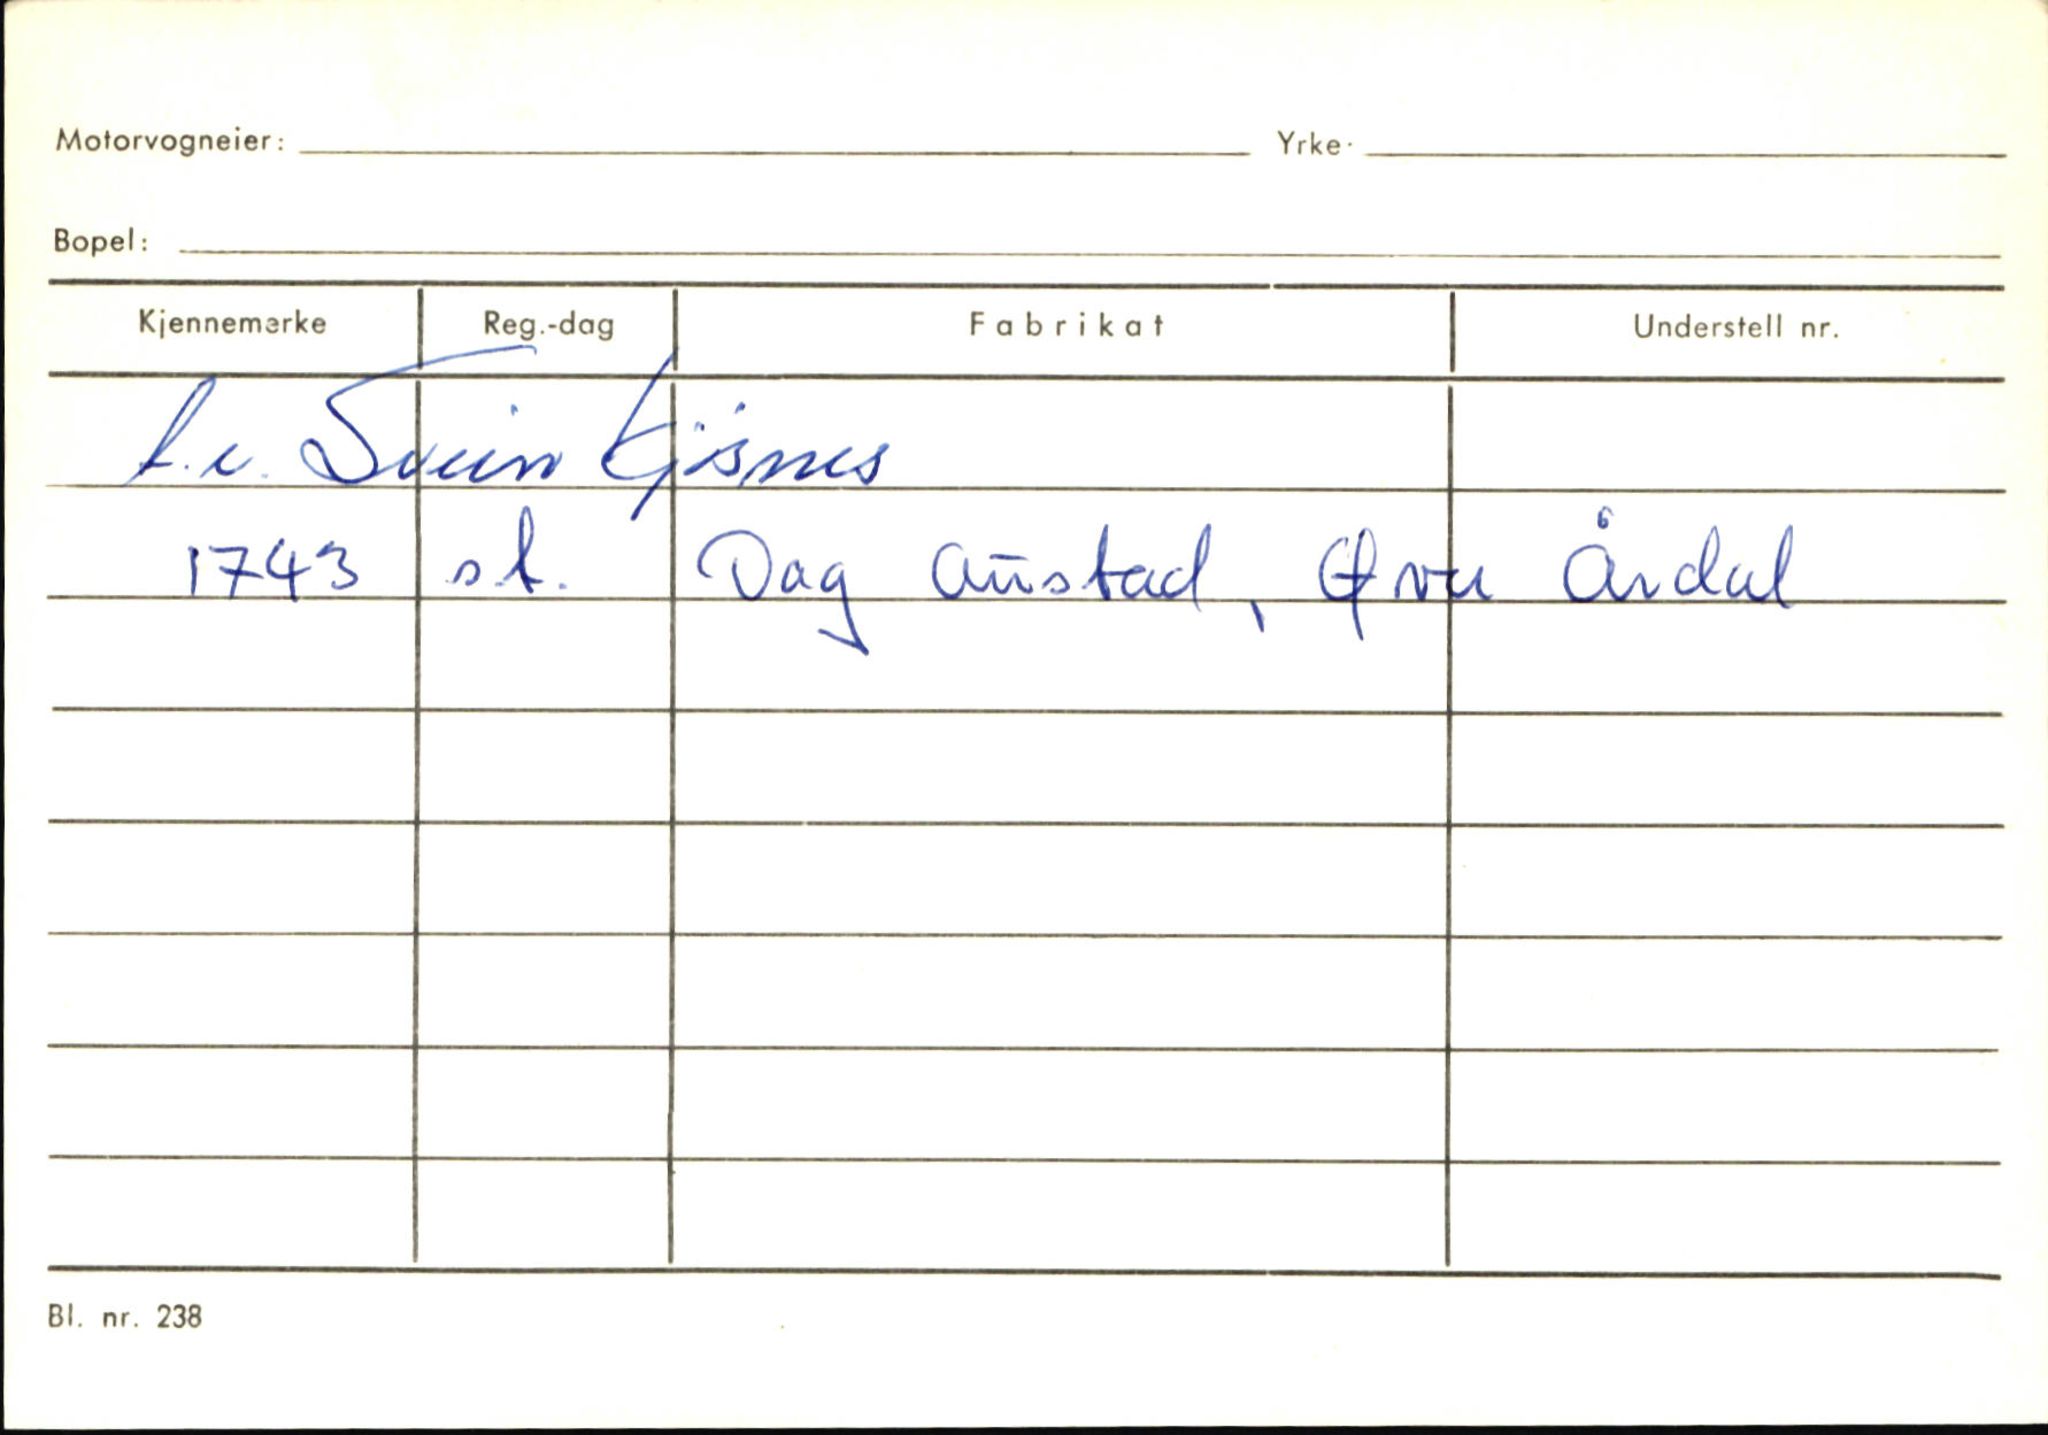 Motorvogneier: Yrke:
Bopel:
Kjennemerke Reg.-dag Fabrikat Understell nr.
Svein Kjisnes
1743 st. Dag Austad, Øvre Årdal
Bl. nr. 238